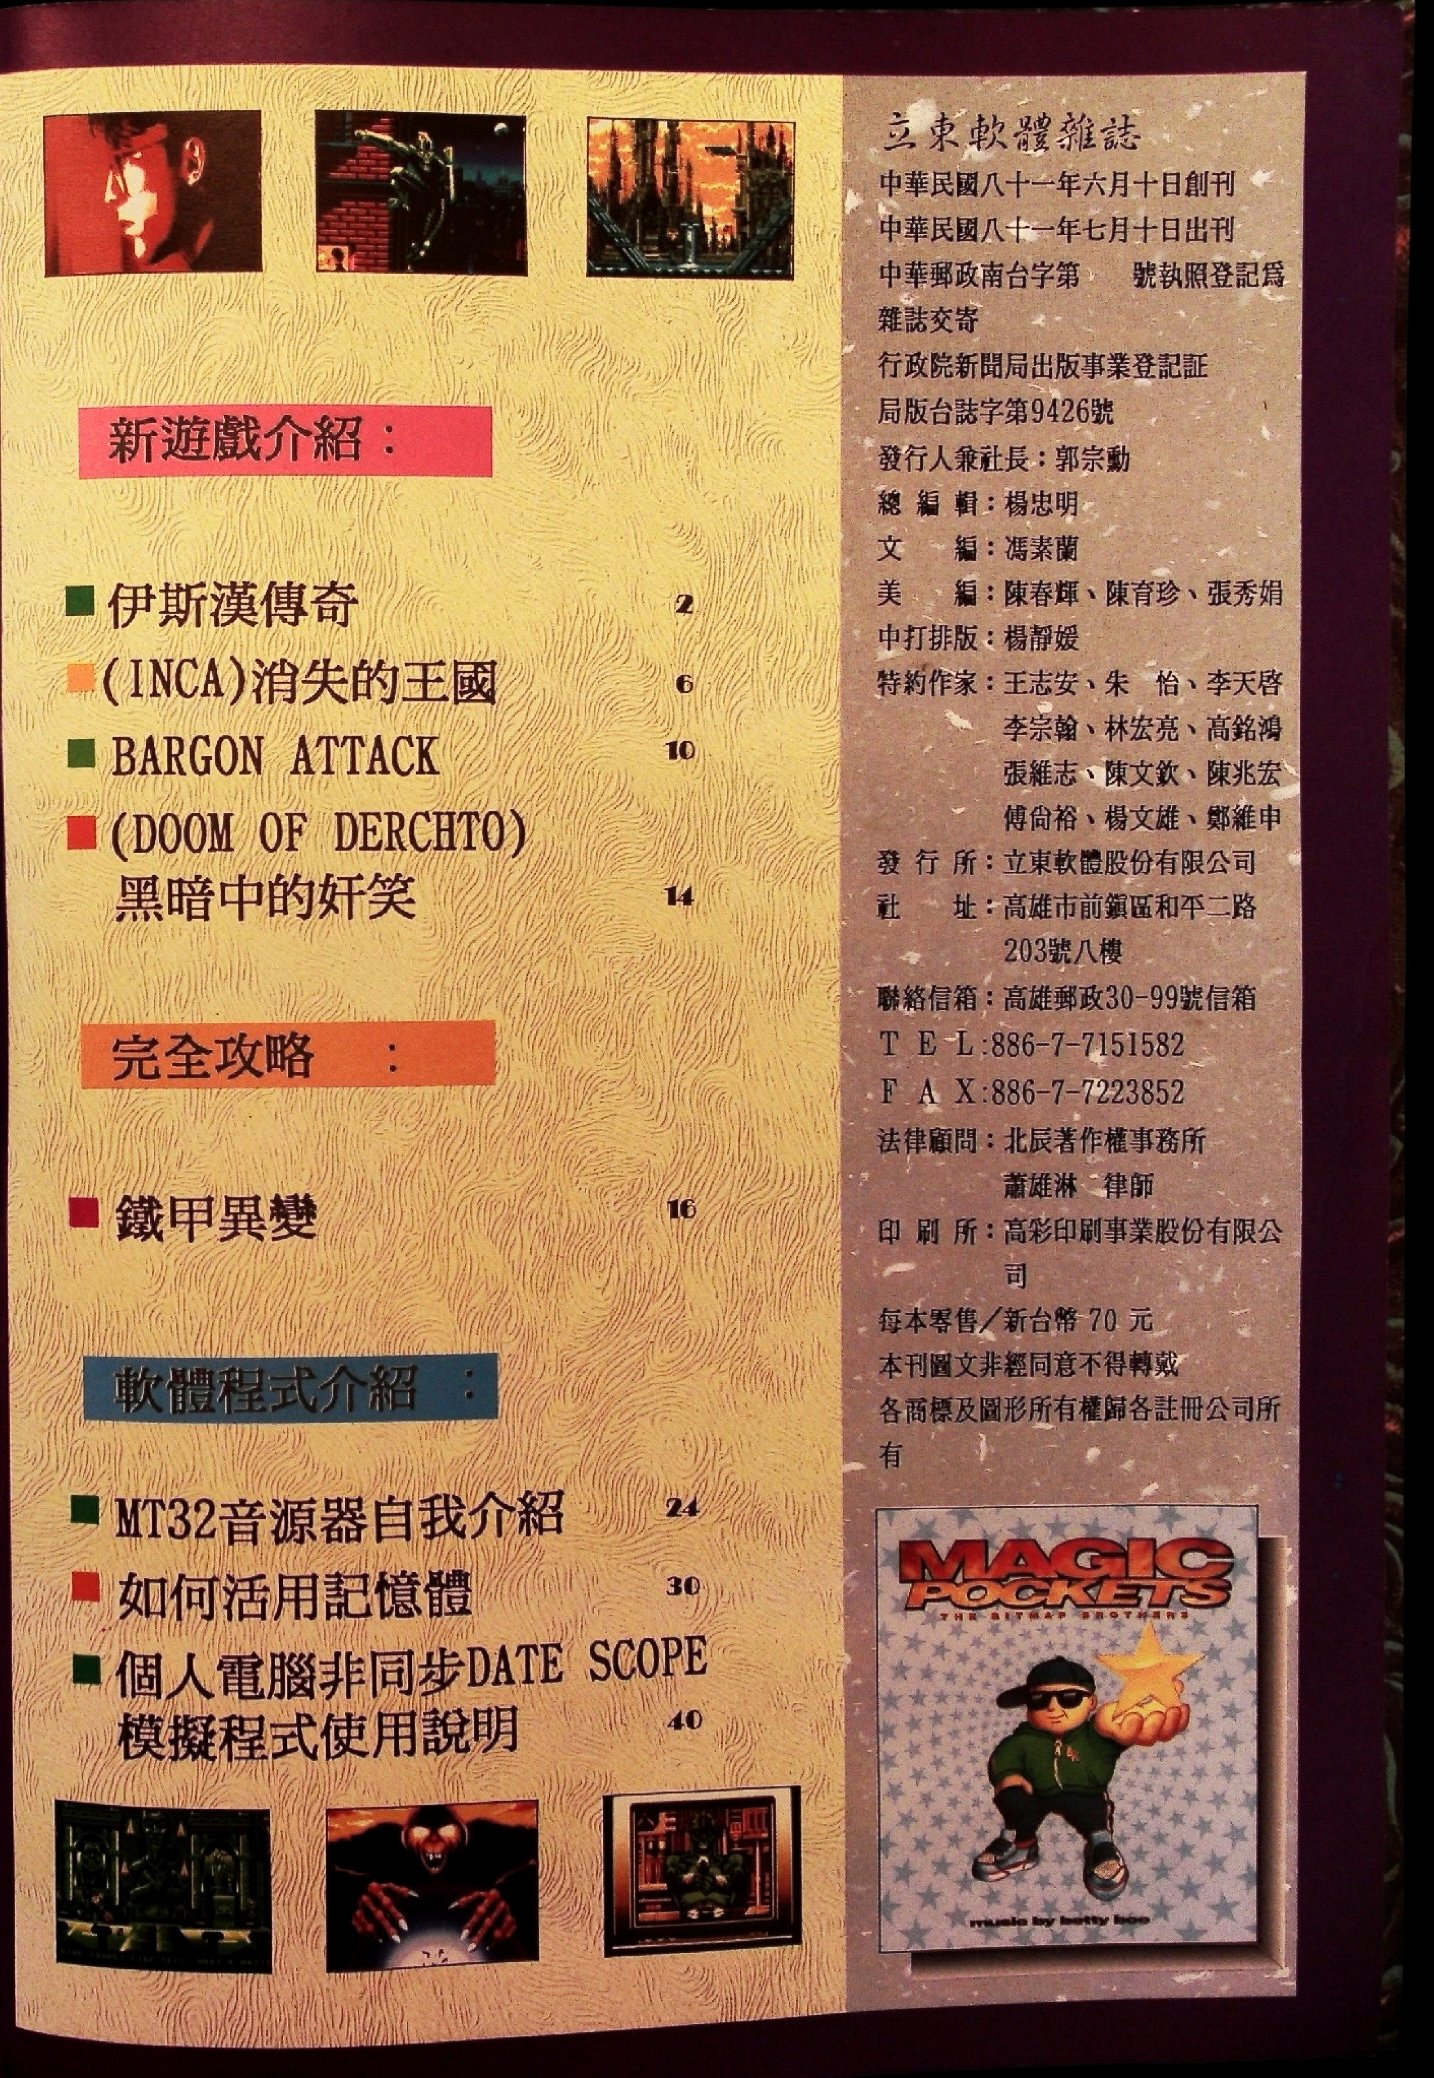 新遊戲介紹：
伊斯漢傳奇 2
(INCA)消失的王國 6
BARGON ATTACK 10
(DOOM OF DERCHTO)
黑暗中的奸笑 14
完全攻略 ：
鐵甲異變 16
軟體程式介紹 ：
MT32音源器自我介紹 24
如何活用記憶體 30
個人電腦非同步DATE SCOPE
模擬程式使用說明 40
立東軟體雜誌
中華民國八十一年六月十日創刊
中華民國八十一年七月十日出刊
中華郵政南台字第　　號執照登記爲
雜誌交寄
行政院新聞局出版事業登記証
局版台誌字第9426號
發行人兼社長：郭宗勳
總 編 輯：楊忠明
文　　編：馮素蘭
美　　編：陳春輝、陳育珍、張秀娟
中打排版：楊靜媛
特約作家：王志安、朱　怡、李天啓
李宗翰、林宏亮、高銘鴻
張維志、陳文欽、陳兆宏
傅尙裕、楊文雄、鄭維申
發 行 所：立東軟體股份有限公司
社　　址：高雄市前鎭區和平二路
203號八樓
聯絡信箱：高雄郵政30-99號信箱
T E L:886-7-7151582
F A X:886-7-7223852
法律顧問：北辰著作權事務所
蕭雄淋　律師
印 刷 所：高彩印刷事業股份有限公
司
每本零售／新台幣 70 元
本刊圖文非經同意不得轉戴
各商標及圖形所有權歸各註冊公司所
有
MAGIC
POCKETS
THE BITMAP BROTHERS
music by betty boo